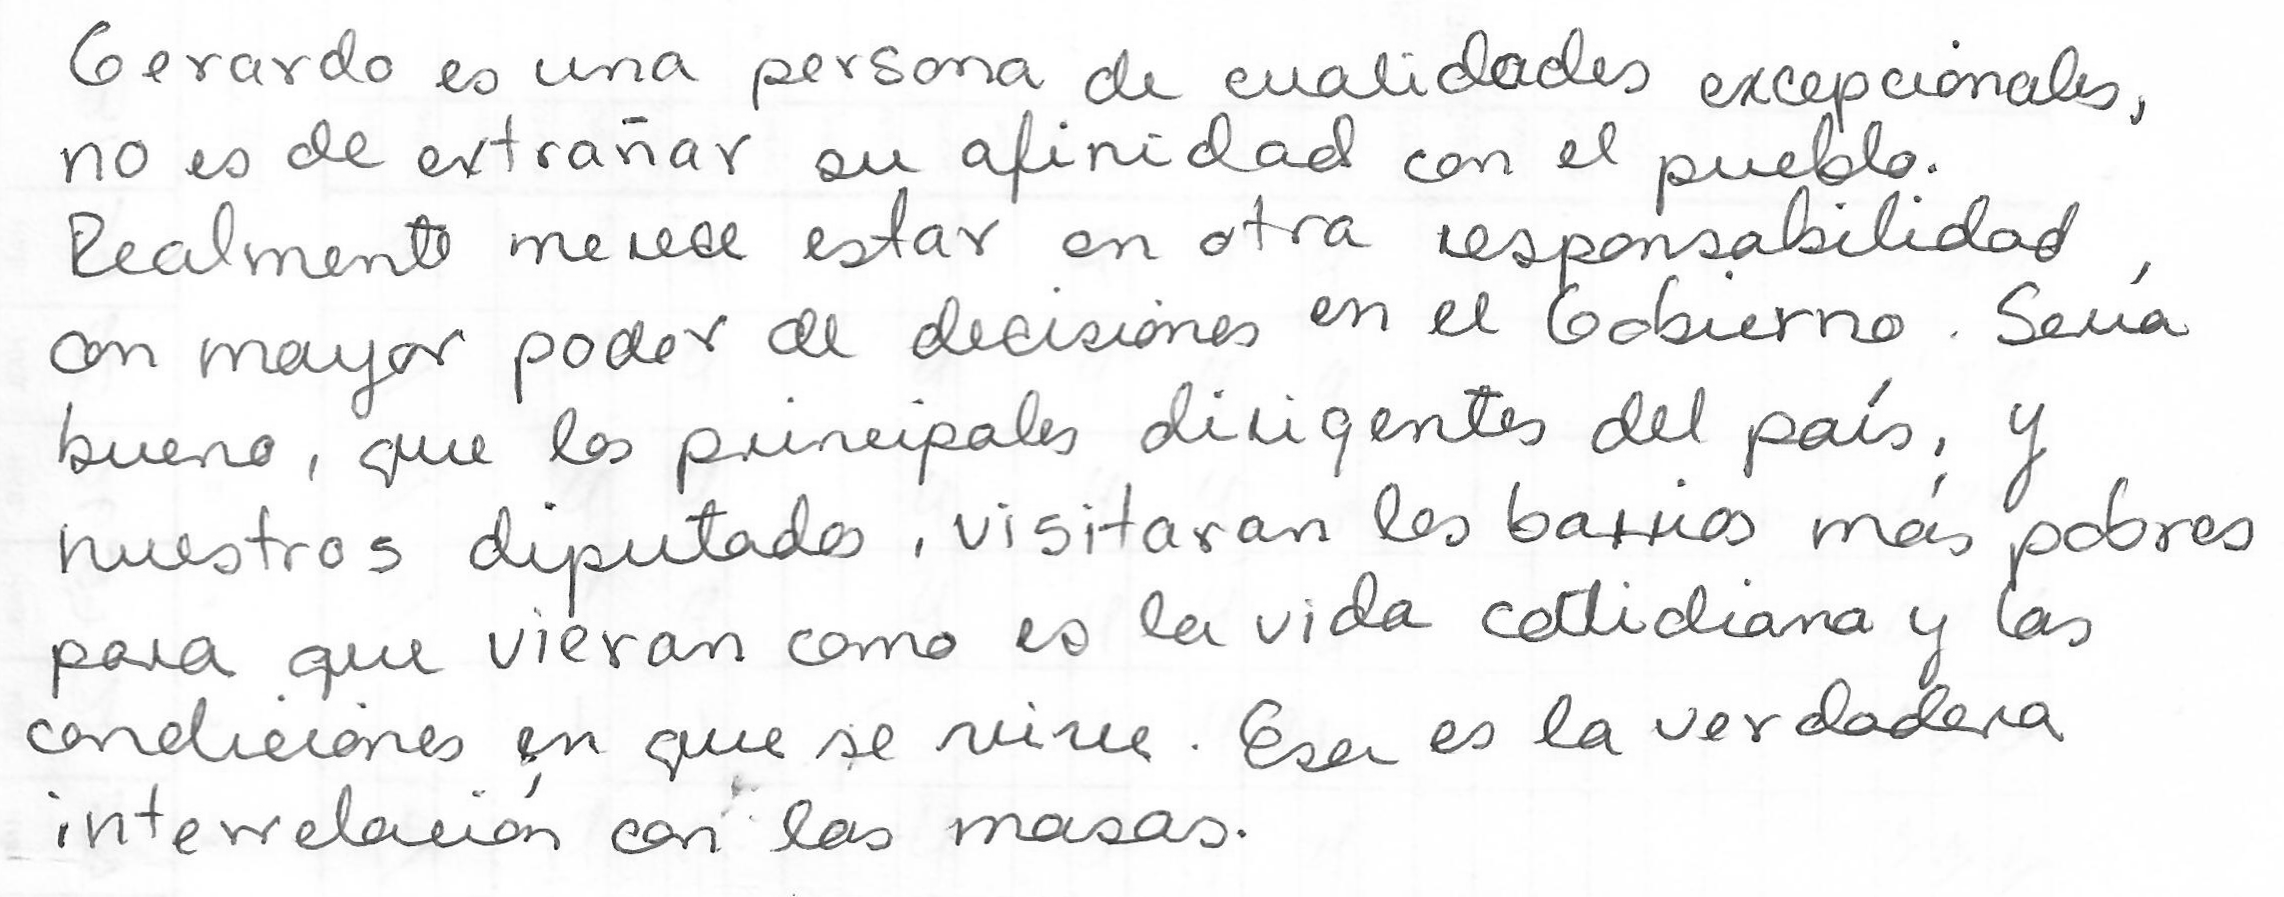 Gerardo es una persona de cualidades excepcionales,
no es de extrañar su afinidad con el pueblo.
Realmente merece estar en otra responsabilidad,
con mayor poder de decisiones en el Gobierno. Sería
bueno, que los principales dirigentes del país, y
nuestros diputados, visitaran los barrios más pobres
para que vieran como es la vida cotidiana y las
condiciones en que se vive. Esa es la verdadera
interrelación con las masas.